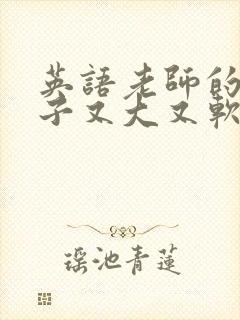 英語老師的
子又大又軟
瑶池青蓮